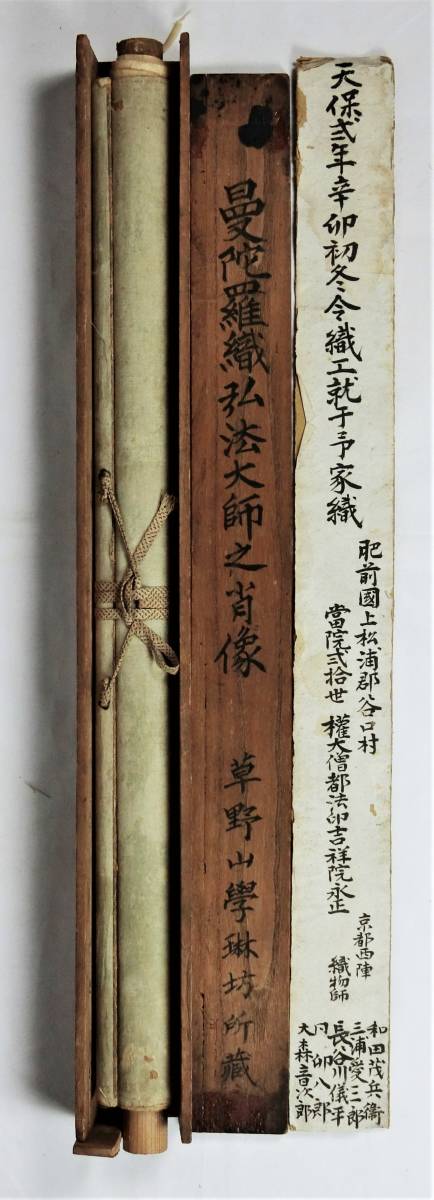 天保弐年辛卯初冬令織工就于予家織
肥前國上松浦郡谷口村
當院弐拾世 權大僧都法印吉祥院永正
京都西陣
織物師
和田茂兵衛
三浦愛三郎
長谷川儀平
円卯八郎
大森音次郎
曼陀羅織弘法大師之肖像
草野山學琳坊所藏